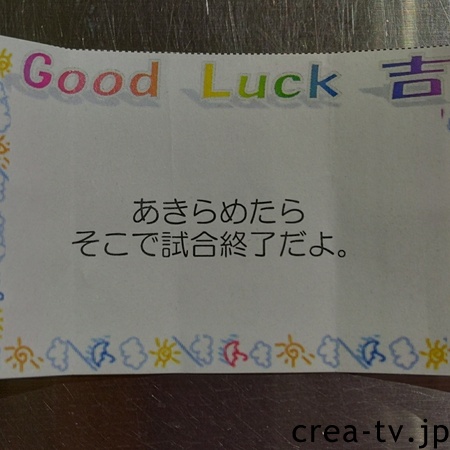 Good Luck 吉
あきらめたら
そこで試合終了だよ。
crea-tv.jp